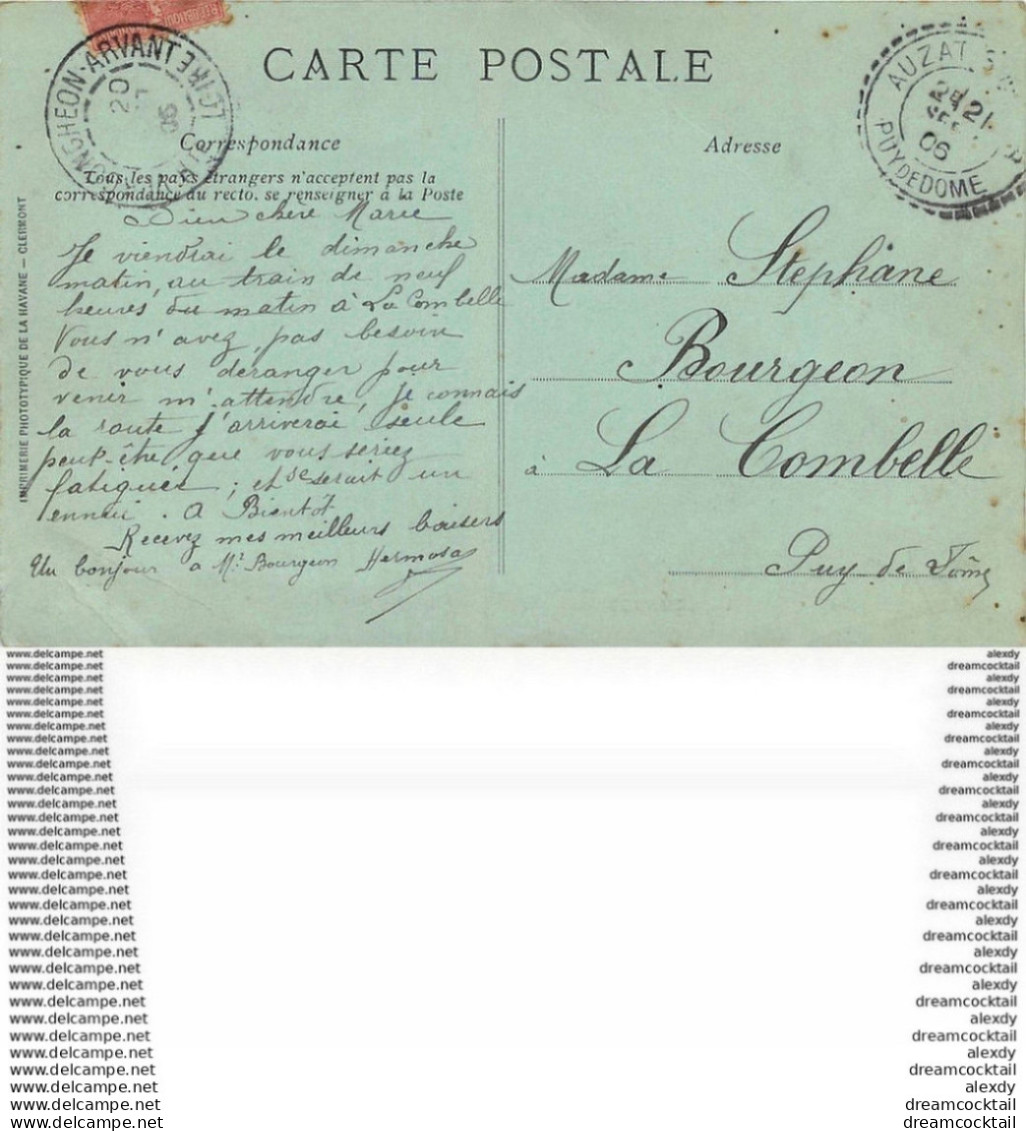 CARTE POSTALE
Correspondance
Tous les pays étrangers n'acceptent pas la
correspondance du recto, se renseigner à la Poste
Adresse
IMPRIMERIE PHOTOTYPIQUE DE LA HAVANE — CLERMONT
ARVANT
20
06
AUZAT
21
06
PUY DE DOME
Bien chère Marie
Je viendrai le dimanche
matin, au train de neuf
heures du matin à La Combelle
Vous n'avez pas besoin
de vous déranger pour
venir m'attendre, Je connais
la route j'arriverai seule
peut-être que vous seriez
fatiguée ; et se serait un
ennui. A Bientôt
Recevez mes meilleurs baisers
Un bonjour a Mr Bourgeon Hermosa
Madame Stephane
Bourgeon
à La Combelle
Puy de Dôme
www.delcampe.net alexdy
www.delcampe.net dreamcocktail
www.delcampe.net alexdy
www.delcampe.net dreamcocktail
www.delcampe.net alexdy
www.delcampe.net dreamcocktail
www.delcampe.net alexdy
www.delcampe.net dreamcocktail
www.delcampe.net alexdy
www.delcampe.net dreamcocktail
www.delcampe.net alexdy
www.delcampe.net dreamcocktail
www.delcampe.net alexdy
www.delcampe.net dreamcocktail
www.delcampe.net alexdy
www.delcampe.net dreamcocktail
www.delcampe.net alexdy
www.delcampe.net dreamcocktail
www.delcampe.net alexdy
www.delcampe.net dreamcocktail
www.delcampe.net alexdy
www.delcampe.net dreamcocktail
www.delcampe.net alexdy
www.delcampe.net dreamcocktail
www.delcampe.net alexdy
www.delcampe.net dreamcocktail
www.delcampe.net alexdy
www.delcampe.net dreamcocktail
www.delcampe.net alexdy
www.delcampe.net dreamcocktail
www.delcampe.net alexdy
www.delcampe.net dreamcocktail
www.delcampe.net alexdy
www.delcampe.net dreamcocktail
www.delcampe.net dreamcocktail